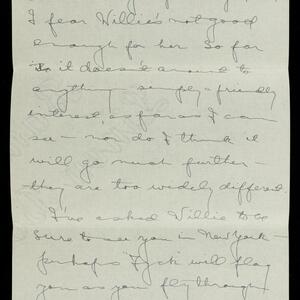 I fear Willie's not good
enough for her. So far
it doesn't amount to
anything - simply a friendly
interest, as far as I can
see - nor do I think it
will go much further -
they are too widely different.
I've asked Willie to be
sure to see you in New York -
perhaps "Fyck" will flag
you as you fly through